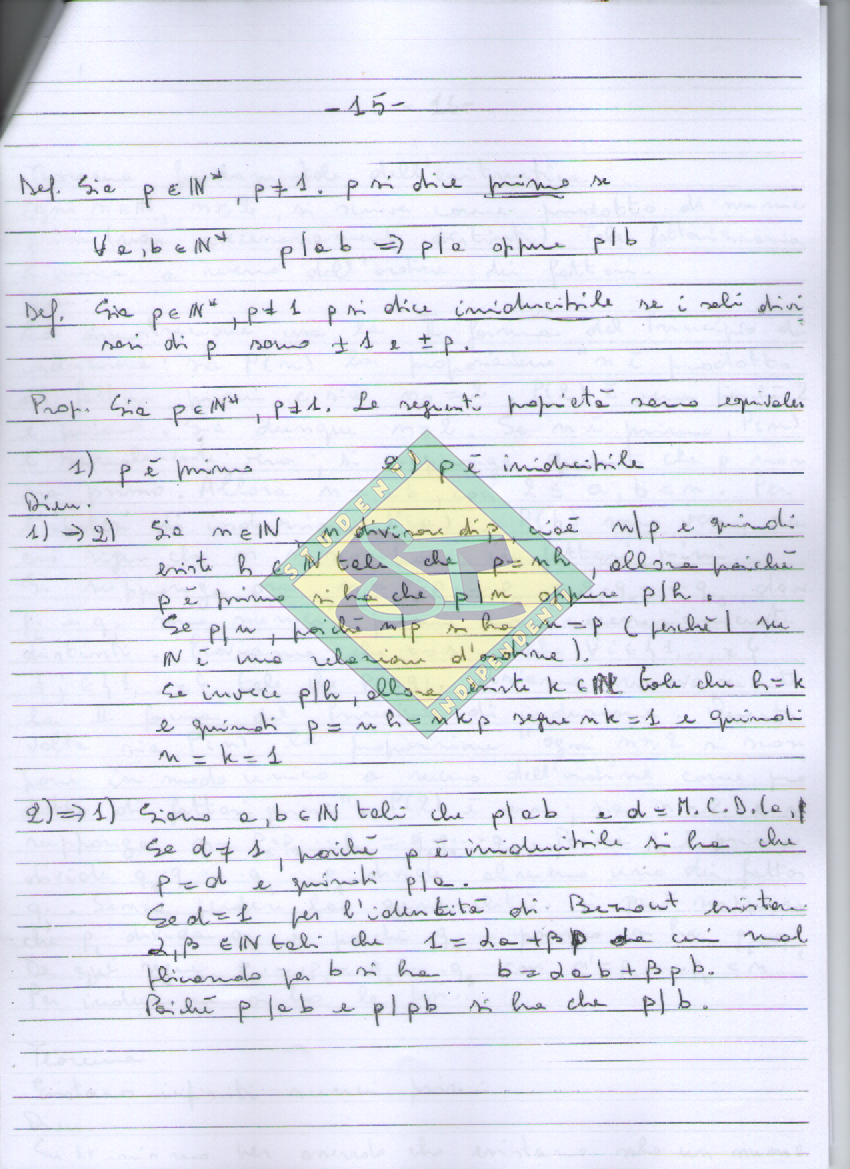 -15-
Def. Sia p ∈ ℕ*, p ≠ 1. p si dice primo se
∀ a, b ∈ ℕ* p/ab ⇒ p/a oppure p/b
Def. Sia p ∈ ℕ*, p ≠ 1 p si dice irriducibile se i soli divi
sori di p sono ±1 e ±p.
Prop. Sia p ∈ ℕ*, p ≠ 1. Le seguenti proprietà sono equivalen
1) p è primo 2) p è irriducibile
Dim.
1) ⇒ 2) Sia n ∈ ℕ, n divisore di p, cioè n/p e quindi
esiste h ∈ ℕ tale che p = nh, allora poichè
p è primo si ha che p/n oppure p/h.
Se p/n, poichè n/p si ha n = p (perchè / su
ℕ è una relazione d'ordine).
Se invece p/h, allora esiste k ∈ ℕ tale che h = k
e quindi p = nh = nkp segue nk = 1 e quindi
n = k = 1
2) ⇒ 1) Siano a, b ∈ ℕ tali che p/ab e d = M.C.D.(a, p
Se d ≠ 1, poichè p è irriducibile si ha che
p = d e quindi p/a.
Se d = 1 per l'identità di Bezout esiston
α, β ∈ ℕ tali che 1 = αa + βp da cui mol
plicando per b si ha b = αab + βpb.
Poichè p/ab e p/pb si ha che p/b.
STUDENTI
SI
INDIPENDENTI